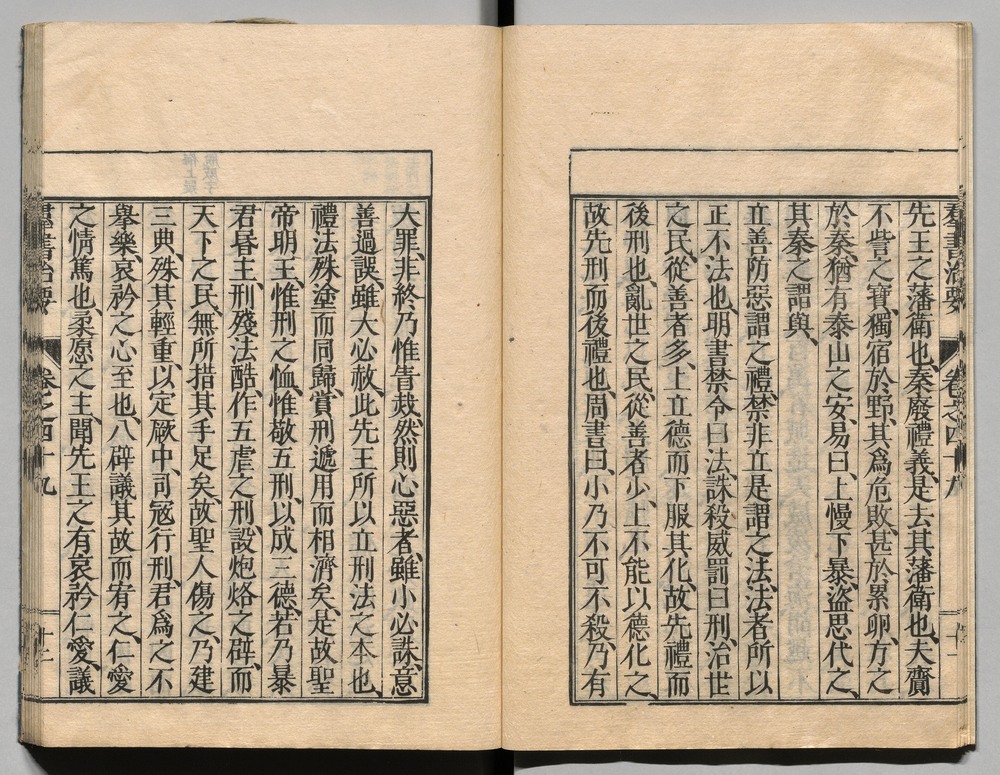 群書治要 卷之四十九 十一
先王之藩衛也、秦廢禮義、是去其藩衛也、夫齎
不訾之寶、獨宿於野、其爲危敗、甚於累卵、方之
於秦、猶有泰山之安、易曰、上慢下暴、盜思代之、
其秦之謂與、
立善防惡謂之禮、禁非立是謂之法、法者所以
正不法也、明書禁令曰法、誅殺威罰曰刑、治世
之民、從善者多、上立德而下服其化、故先禮而
後刑也、亂世之民、從善者少、上不能以德化之、
故先刑而後禮也、周書曰、小乃不可不殺、乃有
大罪、非終、乃惟眚烖、然則心惡者、雖小必誅、意
善過誤、雖大必赦、此先王所以立刑法之本也、
禮法殊塗而同歸、賞刑遞用而相濟矣、是故聖
帝明王、惟刑之恤、惟敬五刑、以成三德、若乃暴
君昏主、刑殘法酷、作五虐之刑、設炮烙之辟、而
天下之民、無所措其手足矣、故聖人傷之、乃建
三典、殊其輕重、以定厥中、司寇行刑、君爲之不
擧樂、哀矜之心至也、八辟議其故而宥之、仁愛
之情篤也、柔愿之主、聞先王之有哀矜仁愛、議
群書治要 卷之四十九 十二